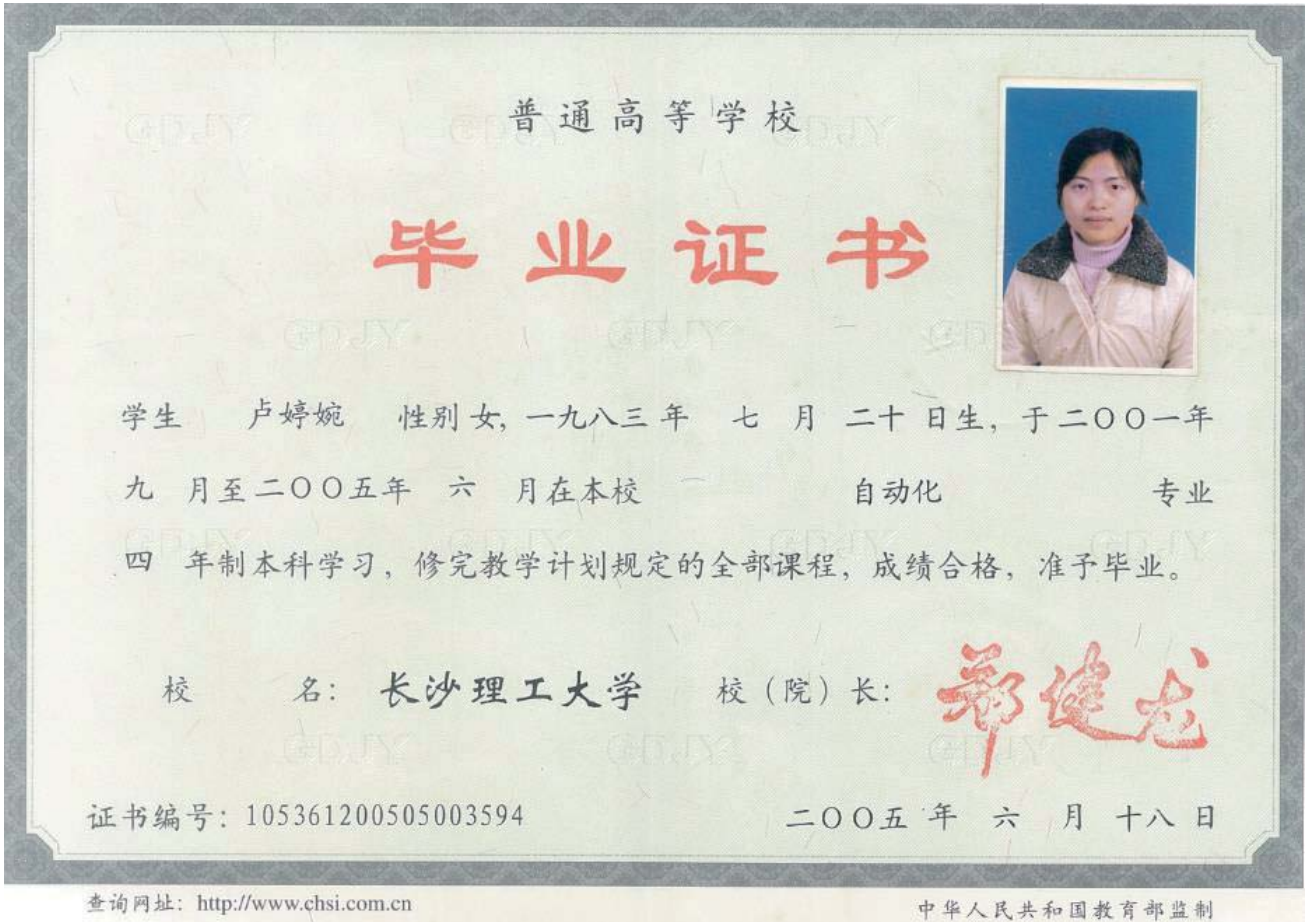 普通高等学校
毕业证书
学生 卢婷婉 性别 女, 一九八三 年 七 月 二十 日生, 于二〇〇一年
九 月至二〇〇五年 六 月在本校 自动化 专业
四 年制本科学习, 修完教学计划规定的全部课程, 成绩合格, 准予毕业。
校 名: 长沙理工大学 校（院）长: 郑健龙
证书编号: 105361200505003594 二〇〇五 年 六 月 十八 日
查询网址: http://www.chsi.com.cn 中华人民共和国教育部监制